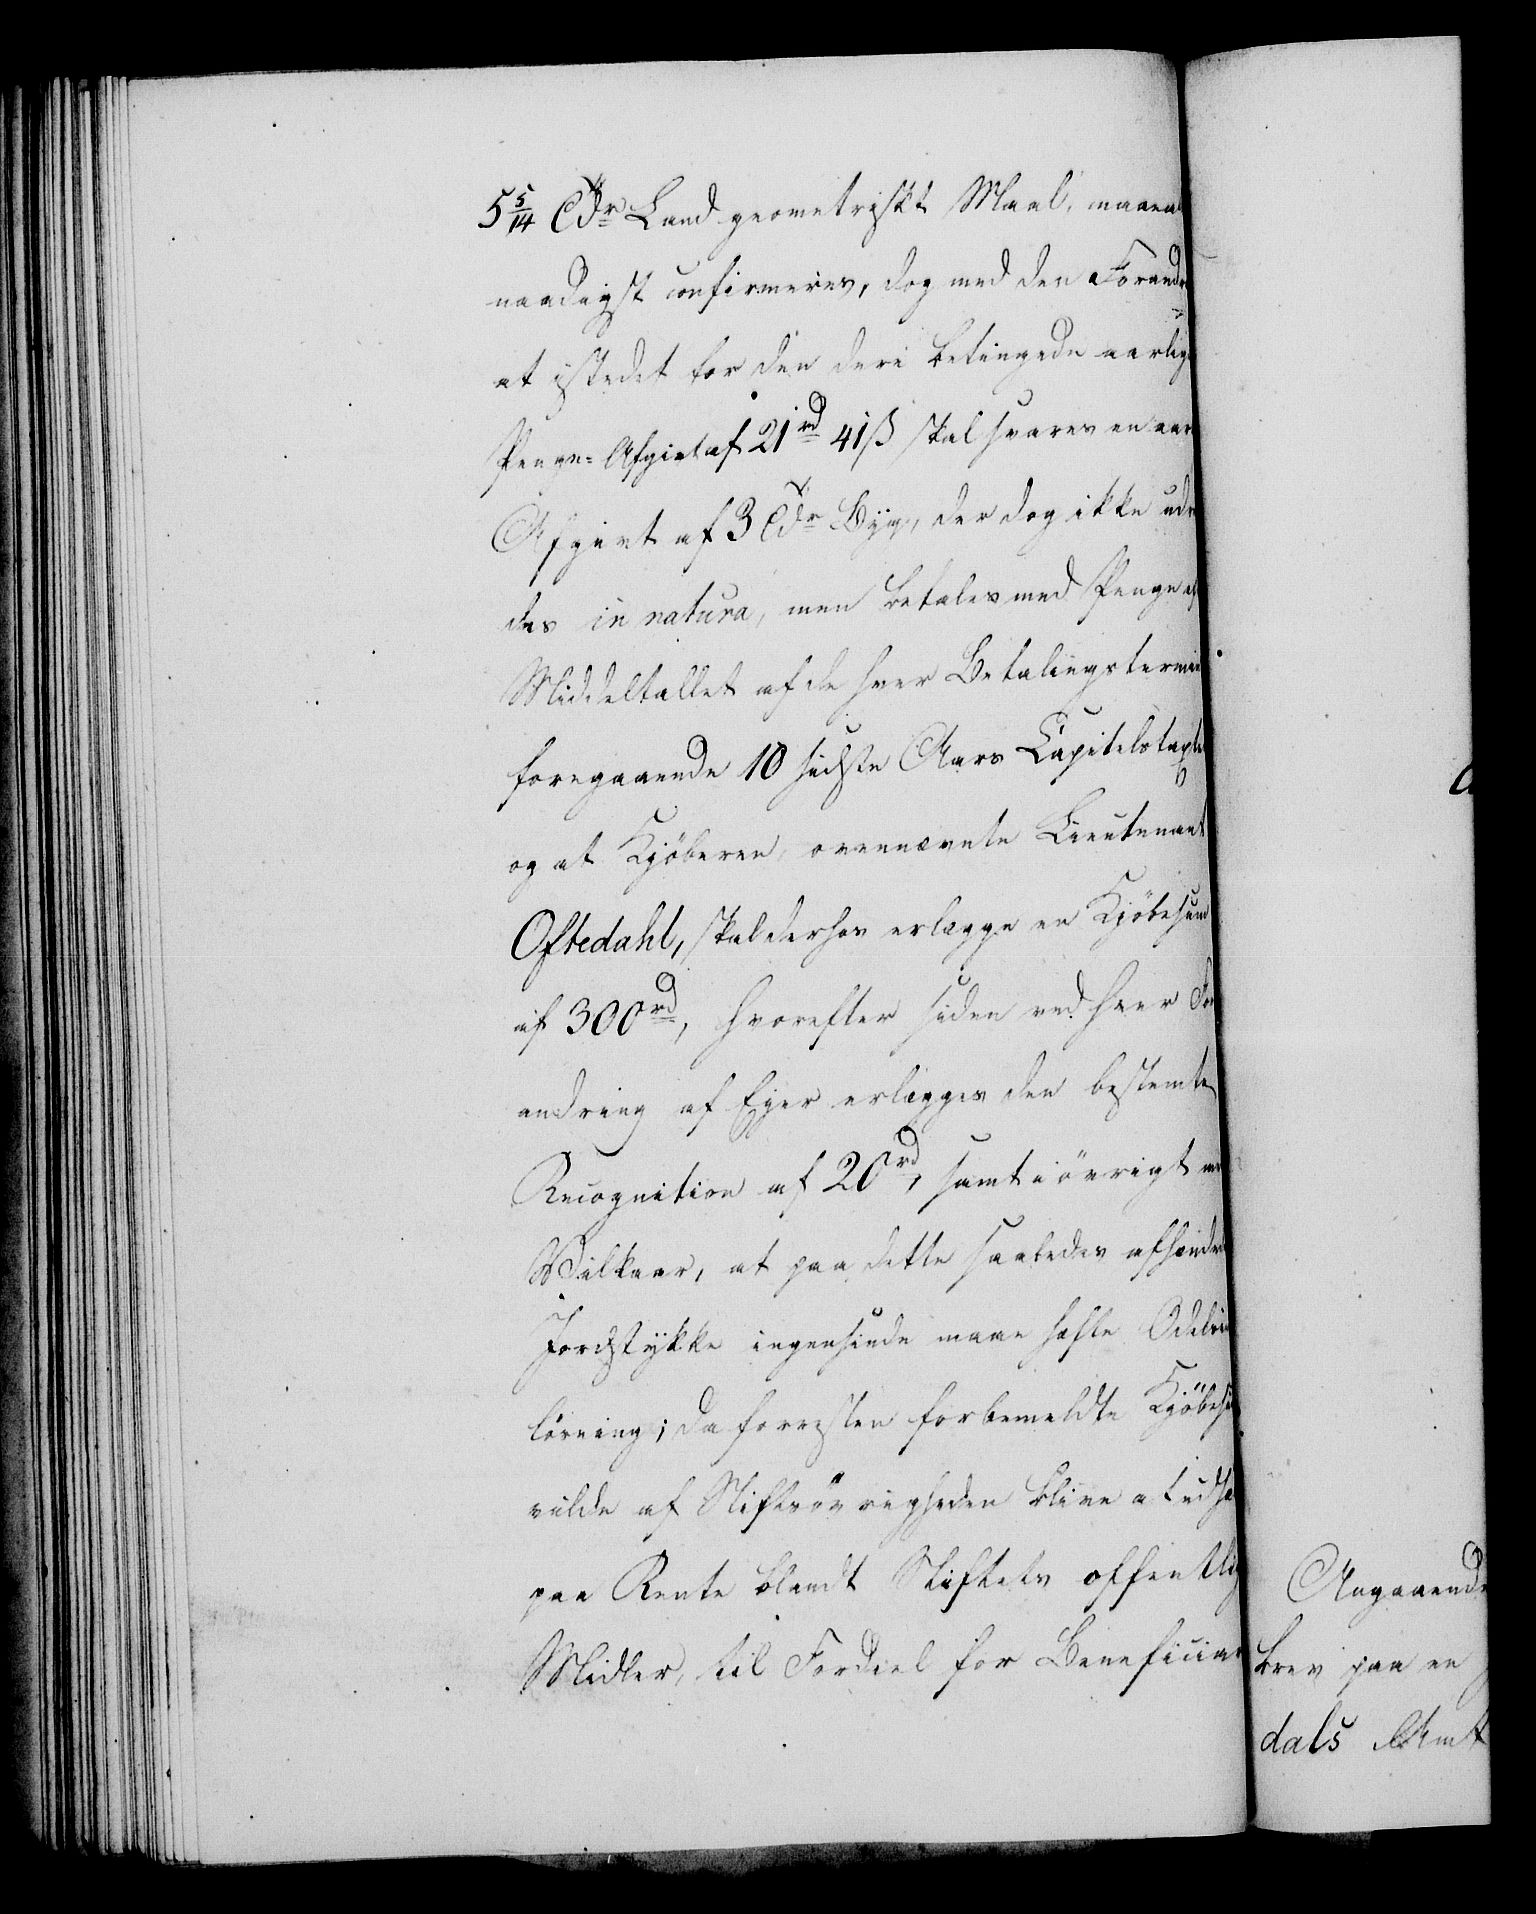 5 5/14 Tdr Land geometriskt Maal, maae al
naadigst confirmeres, dog med den Forandr
at istedet for den deri betingede aarlig
Penge-Afgivt af 21 rd 41 ß skal svares en aar
Afgivt af 3 Tdr Byg, der dog ikke udr
des in natura, men betales med Penge ef
Middeltallet af de hver Betalingstermin
foregaaende 10 sidste Aars Capitelstaxte
og at Kjöberen, ovennævnte Lieutenant
Oftedahl, skal derhos erlægge en Kjöbesum
af 300 rd, hvorefter siden ved hver For
andring af Eger erlægges den bestemte
Recognition af 20 rd, samt iövrigt
Vilkaar, at paa dette saaledes afhænde
Jordstykke ingensinde maae hæfte Odels
lösning; da forresten forbemeldte Kjöbes
vilde af Stiftsövrigheden blive at udsæ
paa Rente blandt Stiftets offentlig
Midler, til Fordeel for Beneficiar
Angaaende
brev paa en
dals Amt